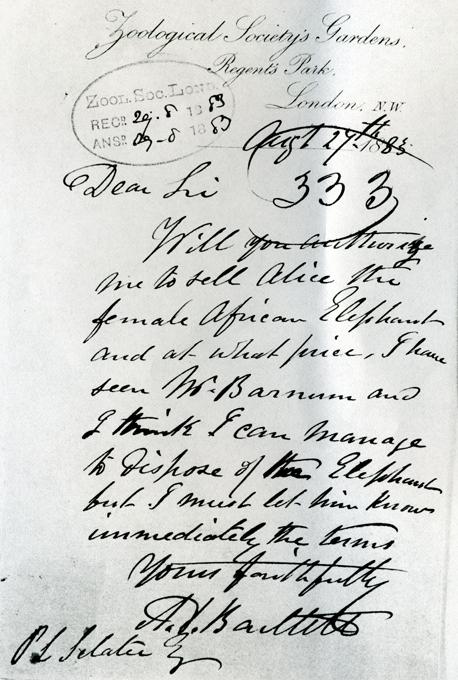 Zoological Society's Gardens.
Regent's Park.
London, N.W.
ZOOL. SOC. LOND.
RECD. 29.8 1883
ANSD. 29-8 1883
Augt 27th 1883
333
Dear Sir
Will you authorize
me to sell Alice the
female African Elephant
and at what price, I have
seen Mr. Barnum and
I think I can manage
to dispose of the Elephant
but I must let him know
immediately the terms
Yours faithfully
A. D. Bartlett
P L Sclater Esq